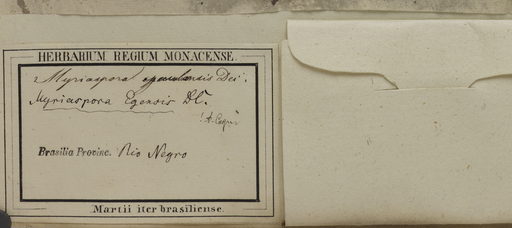 HERBARIUM REGIUM MONACENSE.
Myriaspora Dec.
Myriaspora Egensis DC.
Brasilia Provinc. Rio Negro
Martii iter brasiliense.